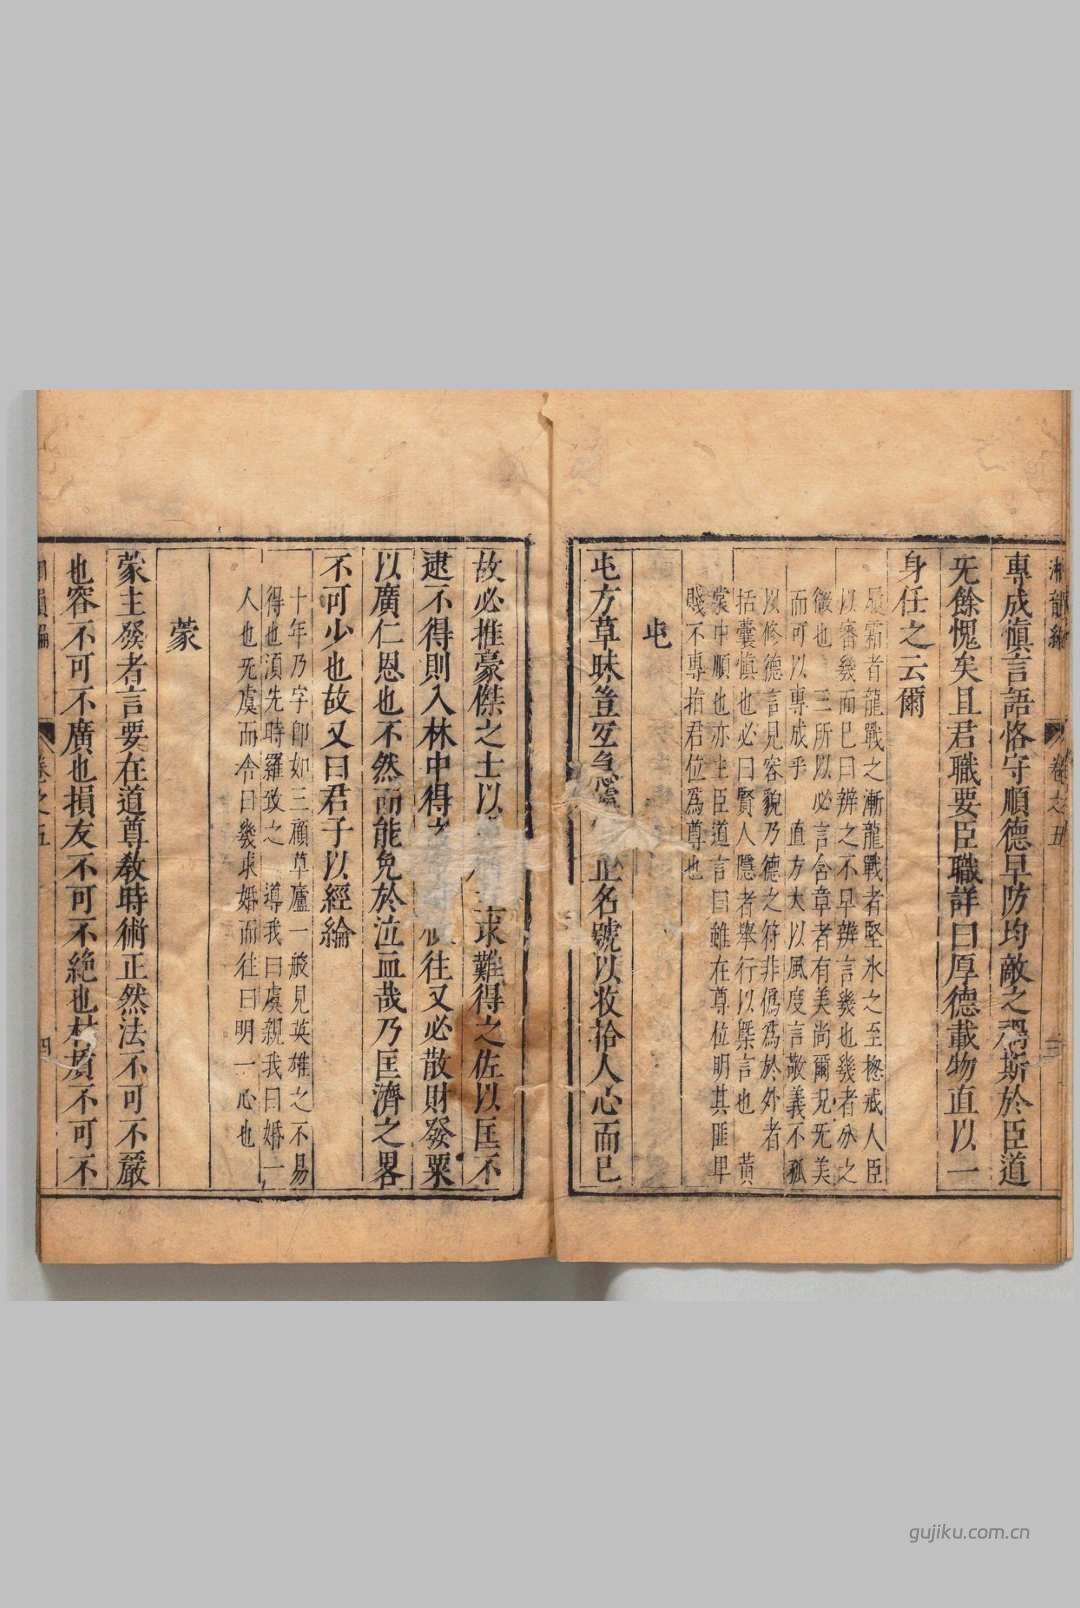 專成愼言語恪守順德早防均敵之禍斯於臣道
旡餘愧矣且君職要臣職詳曰厚德載物直以一
身任之云爾
履霜者龍戰之漸龍戰者堅氷之至揔戒人臣
以審幾而巳曰辨之不早辨言幾也幾者分之
微也 三所以必言含章者有美尚爾况旡美
而可以專成乎 直方大以風度言敬義不孤
以修德言見容貌乃德之符非僞爲於外者
括囊愼也必曰賢人隱者舉行以槩言也 黃
裳中順也亦主臣道言囯雖在尊位明其匪卑
賤不專指君位爲尊也
屯
屯方草昧豈
正名號以收拾人心而巳
故必推豪傑之士以
求難得之佐以匡不
逮不得則入林中得
往又必散財發粟
以廣仁恩也不然而能免於泣血哉乃匡濟之畧
不可少也故又曰君子以經綸
十年乃字卽如三顧草廬一般見英雄之不易
得也湏先時羅致之 導我曰虞親我曰婚一
人也旡虞而令曰幾求婚而往曰明一心也
蒙
蒙主發者言要在道尊教時術正然法不可不嚴
也容不可不廣也損友不可不絶也
不可不
卷之五
四
gujiku.com.cn